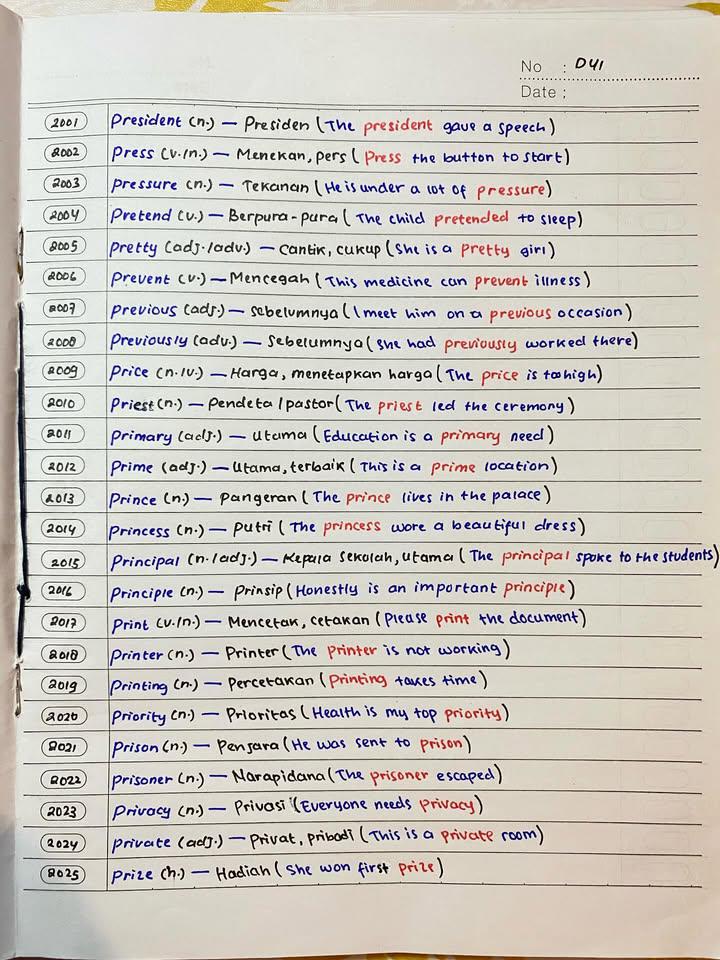 No : D41
Date :
2001 President (n.) — Presiden (The president gave a speech)
2002 Press (v./n.) — Menekan, pers (Press the button to start)
2003 Pressure (n.) — Tekanan (He is under a lot of pressure)
2004 Pretend (v.) — Berpura-pura (The child pretended to sleep)
2005 Pretty (adj./adv.) — cantik, cukup (She is a pretty girl)
2006 Prevent (v.) — Mencegah (This medicine can prevent illness)
2007 Previous (adj.) — sebelumnya (I meet him on a previous occasion)
2008 Previously (adv.) — Sebelumnya (She had previously worked there)
2009 Price (n./v.) — Harga, menetapkan harga (The price is too high)
2010 Priest (n.) — Pendeta / pastor (The priest led the ceremony)
2011 Primary (adj.) — utama (Education is a primary need)
2012 Prime (adj.) — Utama, terbaik (This is a prime location)
2013 Prince (n.) — Pangeran (The prince lives in the palace)
2014 Princess (n.) — Putri (The princess wore a beautiful dress)
2015 Principal (n./adj.) — Kepala sekolah, utama (The principal spoke to the students)
2016 Principle (n.) — Prinsip (Honestly is an important principle)
2017 Print (v./n.) — Mencetak, cetakan (Please print the document)
2018 Printer (n.) — Printer (The printer is not working)
2019 Printing (n.) — Percetakan (Printing takes time)
2020 Priority (n.) — Prioritas (Health is my top priority)
2021 Prison (n.) — Penjara (He was sent to prison)
2022 Prisoner (n.) — Narapidana (The prisoner escaped)
2023 Privacy (n.) — Privasi (Everyone needs privacy)
2024 Private (adj.) — Privat, pribadi (This is a private room)
2025 Prize (n.) — Hadiah (She won first prize)